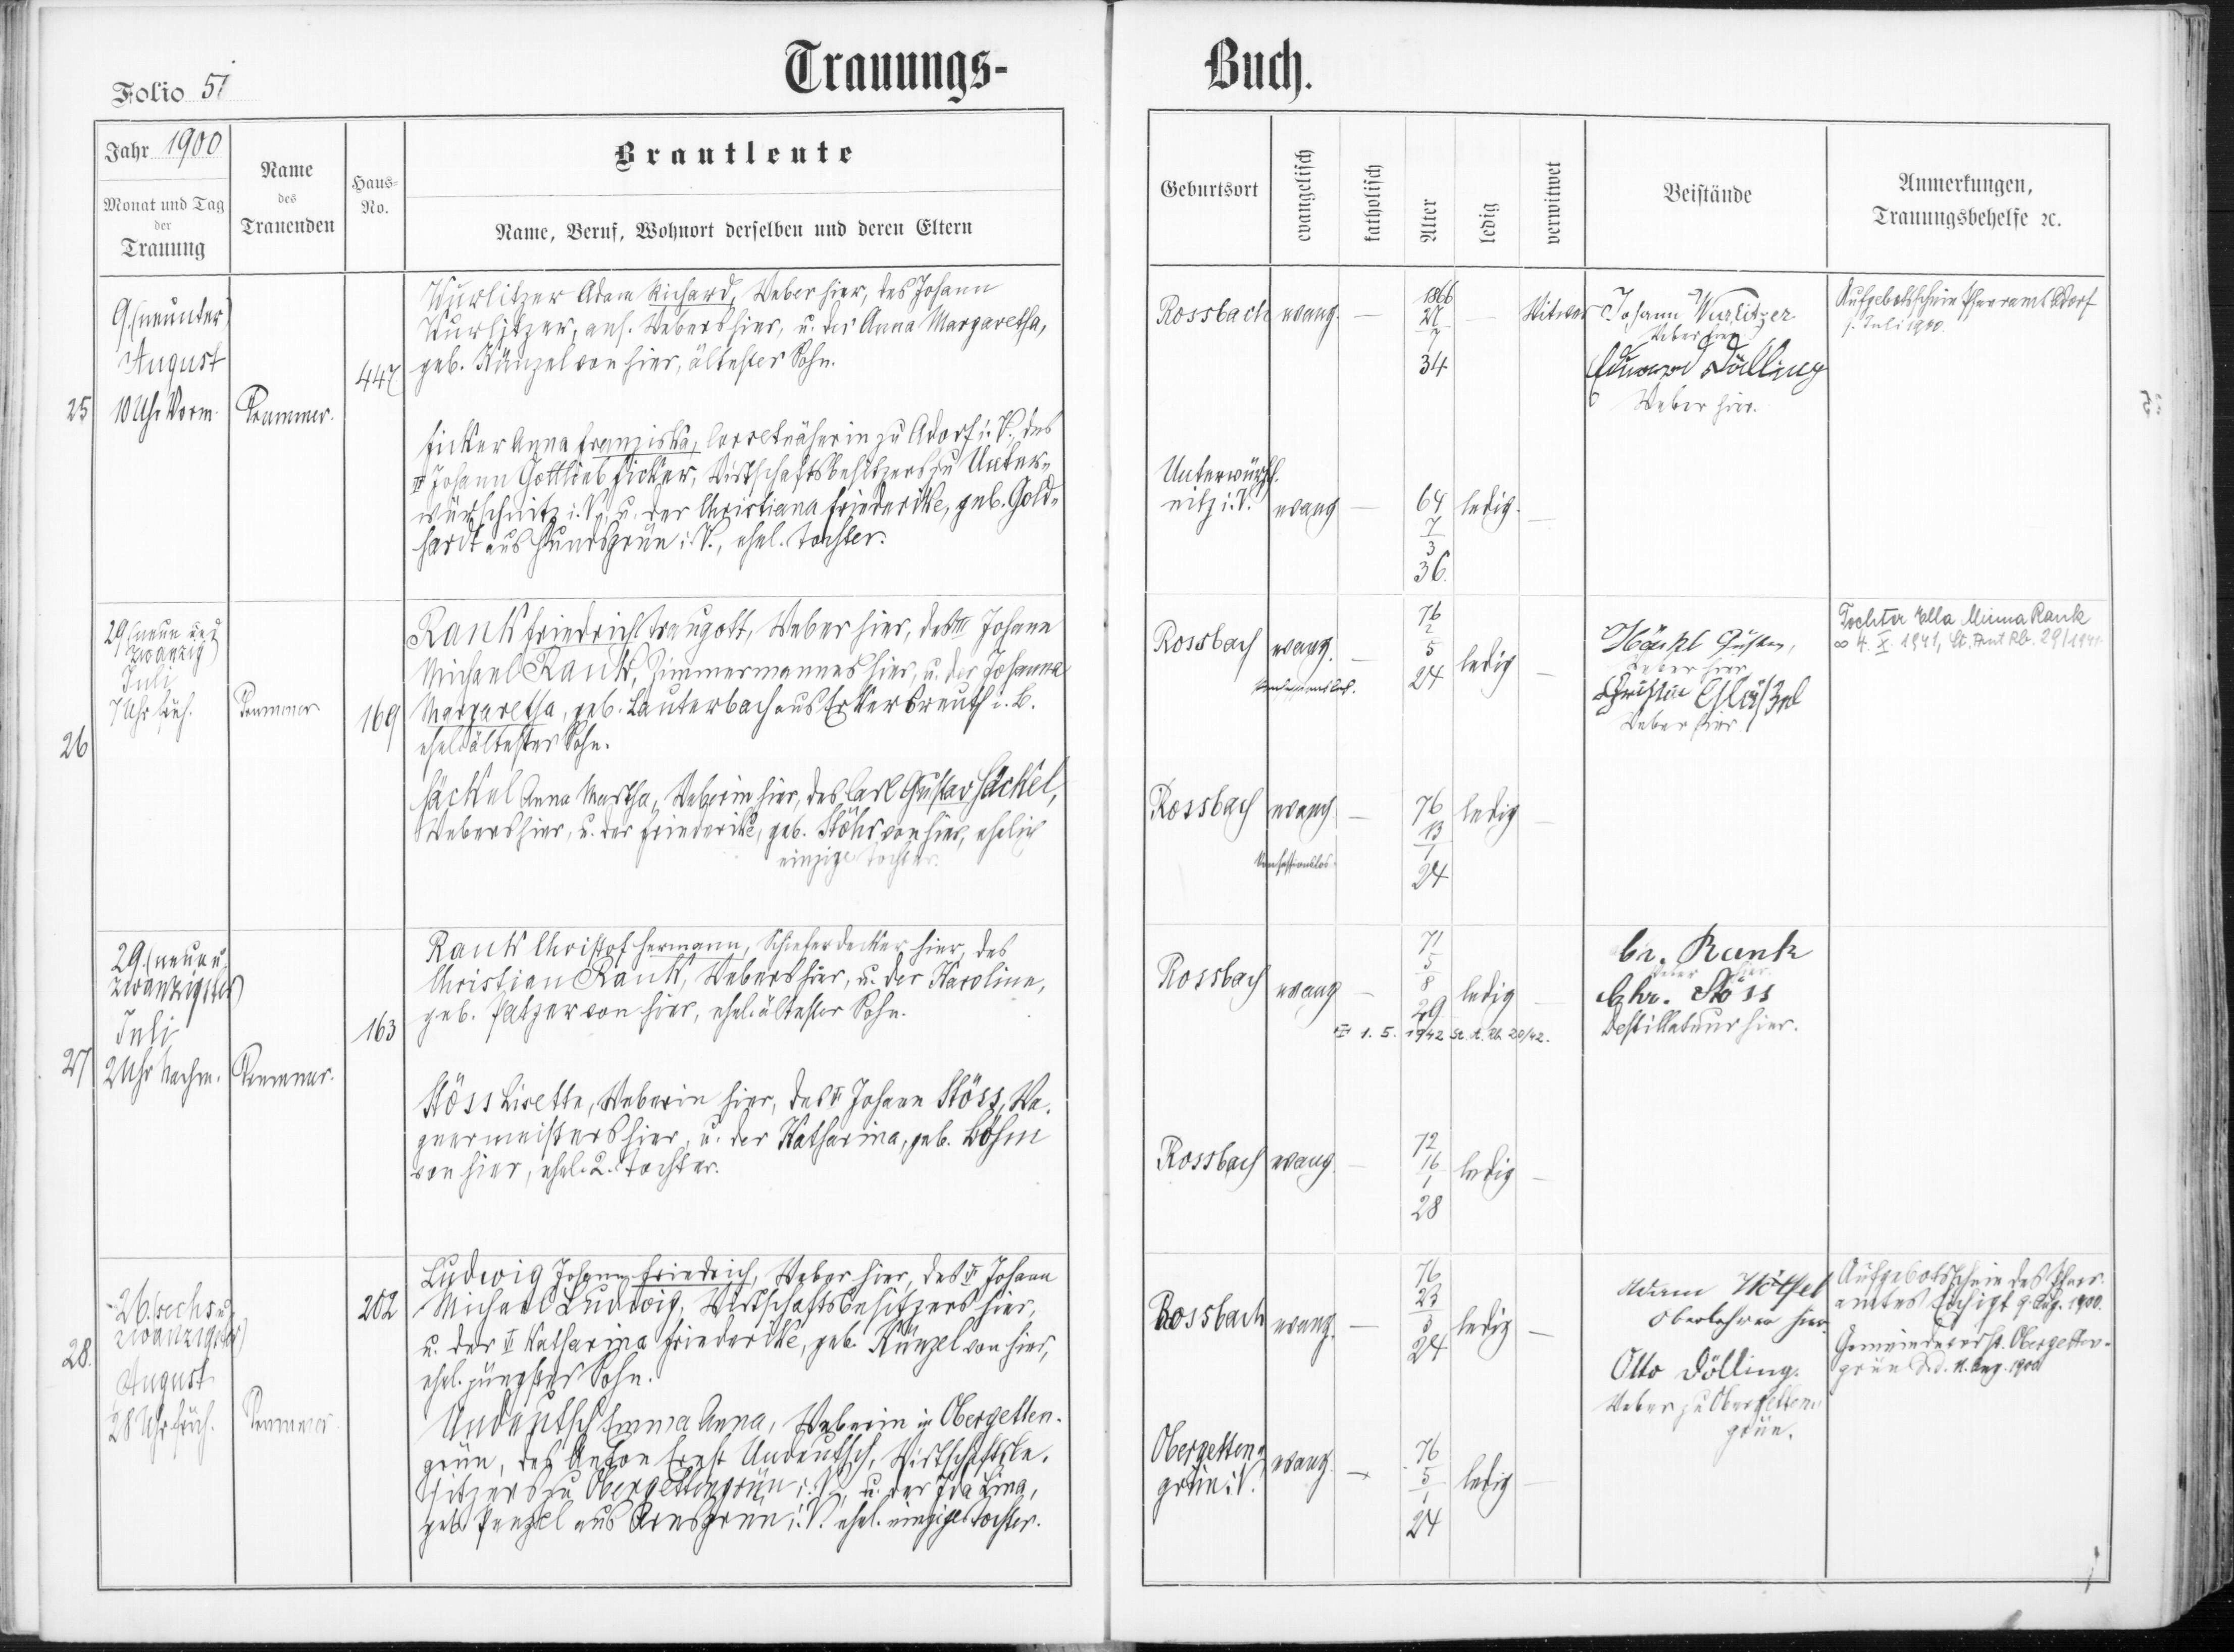 Trauungs-
Buch.
Folio 51
Jahr 1900
Monat und Tag
der
Trauung
Name
des
Trauenden
Haus-
No.
Brautleute
Name, Beruf, Wohnort derselben und deren Eltern
Geburtsort
evangelisch
katholisch
Alter
ledig
verwitwet
Beistände
Anmerkungen,
Trauungsbehelfe ꝛc.
25
9. (neunter)
August
10 Uhr Vorm.
447
Wurlitzer Adam Richard, Weber hier, des Johann
Wurlitzer, ans. Webers hier, u. der Anna Margaretha,
geb. Künzel von hier, ältester Sohn.
Ficker Anna Franziska, Corsetnäherin zu Adorf i. V., des
Johann Gottlieb Ficker, Wirtschaftsbesitzers zu Unter-
würschnitz i. V., u. der Christiana Friedericke, geb. Gold-
hardt aus Hundsgrün i. V., ehel. Tochter.
Rossbach evang. — 1866
27
7
34
— Witwer
Johann Wurlitzer
Weber hier
Eduard Dölling
Weber hier.
Aufgebotsschein Pfarramt Adorf
Juli 1900.
Unterwürsch-
nitz i. V. evang — 64
7
3
36.
ledig. —
26
29 (neun und
zwanzig
Juli
7 Uhr früh.
169
Rank Friedrich Traugott, Weber hier, des Johann
Michael Rank, Zimmermannes hier, u. der Johanna
Margaretha, geb. Lauterbach aus Erkersreuth i. B.
ehel. ältester Sohn.
Häckel Anna Martha, Weberin hier, des Carl Gustav Häckel,
Webers hier, u. der Friedericke, geb. Stöhr von hier, ehelich
einzige Tochter.
Rossbach evang. — 76
2
5
24
ledig —
Weber hier,
Weber hier.
Tochter Ella Minna Rank
∞ 4. X. 1941, St. Amt Rb. 29/1941
Rossbach evang — 76
13
1
24
ledig —
Konfessionslos.
27
29. (neun u.
zwanzigster)
Juli
2 Uhr Nachm.
163
Rank Christof Hermann, Schieferdecker hier, des
Christian Rank, Webers hier, u. der Karoline,
geb. Patzer von hier, ehel. ältester Sohn.
Stöss Lisette, Weberin hier, des Johann Stöss, Wa-
gnermeisters hier, u. der Katharina, geb. Böhm
von hier, ehel. 2. Tochter.
Rossbach evang — 71
5
8
29
ledig —
1. 5. 1942 St. A. Rb. 20/42.
Cr. Rank
Weber hier.
Chr. Stöss
Destillateur hier.
Rossbach evang — 72
16
1
28
ledig —
28.
26. (sechs u.
zwanzigster)
August
8 Uhr früh.
202
Ludwig Johann Friedrich, Weber hier, des Johann
Michael Ludwig, Wirtschaftsbesitzers hier,
u. der Katharina Friedericke, geb. Künzel von hier,
ehel. jüngster Sohn.
Undeutsch Emma Anna, Weberin in Obergetten-
grün, des Anton Ernst Undeutsch, Wirtschaftsbe-
sitzers zu Obergettengrün i. V., u. der Ida Lina,
geb. Penzel aus Arnsgrün i. V. ehel. einzige Tochter.
Rossbach evang. — 76
23
3
24
ledig —
Adam
Oberlehrer hier.
Otto Dölling.
Weber zu Obergetten-
grün.
Aufgebotsschein des Pfarr-
amtes 9. Aug. 1900.
Obergetten-
grün d. d. 11. Aug. 1900
Obergetten-
grün i. V. evang. — 76
5
1
24
ledig —